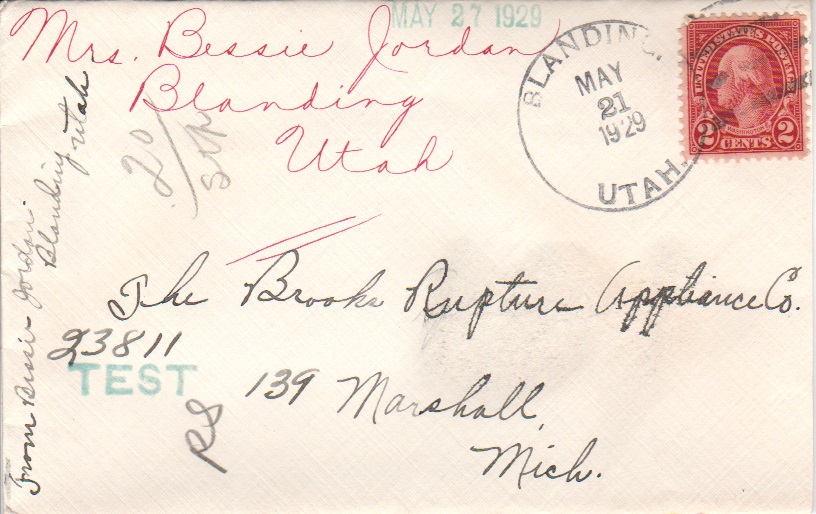 MAY 27 1929
Mrs. Bessie Jordan
Blanding
Utah
BLANDING,
MAY
21
1929
UTAH.
UNITED STATES POSTAGE
WASHINGTON
2 CENTS 2
20
From Bessie Jordan
Blanding Utah
The Brooks Rupture Appliance Co.
23811
TEST
139 Marshall,
Mich.